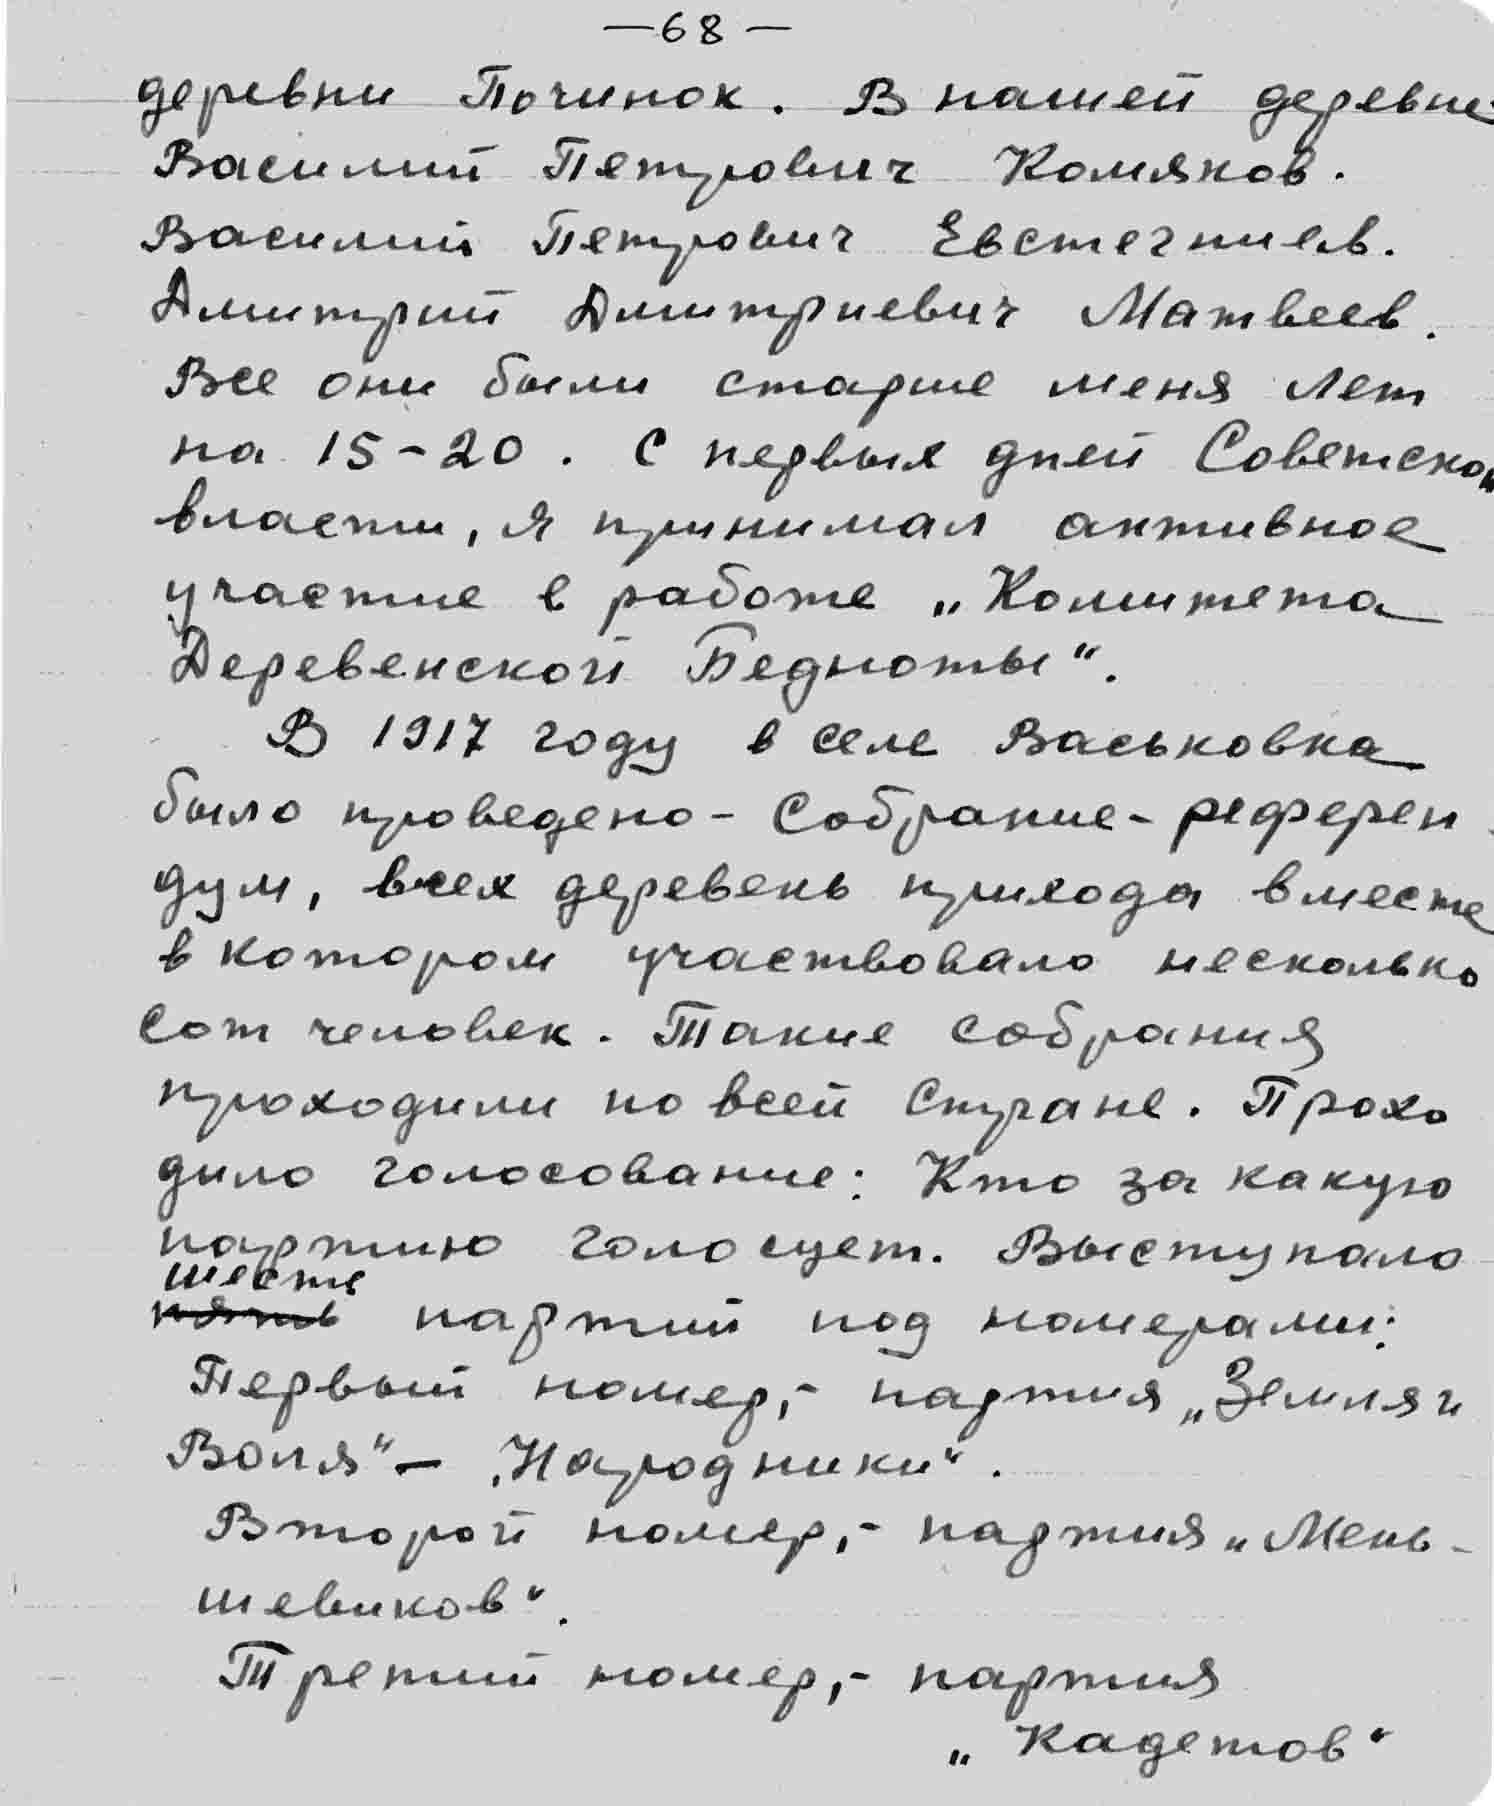 —68—
деревни Починок. В нашей деревне
Василий Петрович Комяков.
Василий Петрович Евстегниев.
Дмитрий Дмитриевич Матвеев.
Все они были старше меня лет
на 15-20. С первых дней Советской
власти, я принимал активное
участие в работе „Комитета
Деревенской Бедноты“.
В 1917 году в селе Васьковка
было проведено - Собрание - референ-
дум, всех деревень прихода вместе
в котором участвовало несколько
сот человек. Такие собрания
проходили по всей Стране. Прохо
дило голосование: Кто за какую
партию голосует. Выступало
шесть
пять партий под номерами:
Первый номер,- партия „Земля и
Воля“ — „Народники“.
Второй номер,- партия „Мень-
шевиков“.
Третий номер,- партия
„Кадетов“